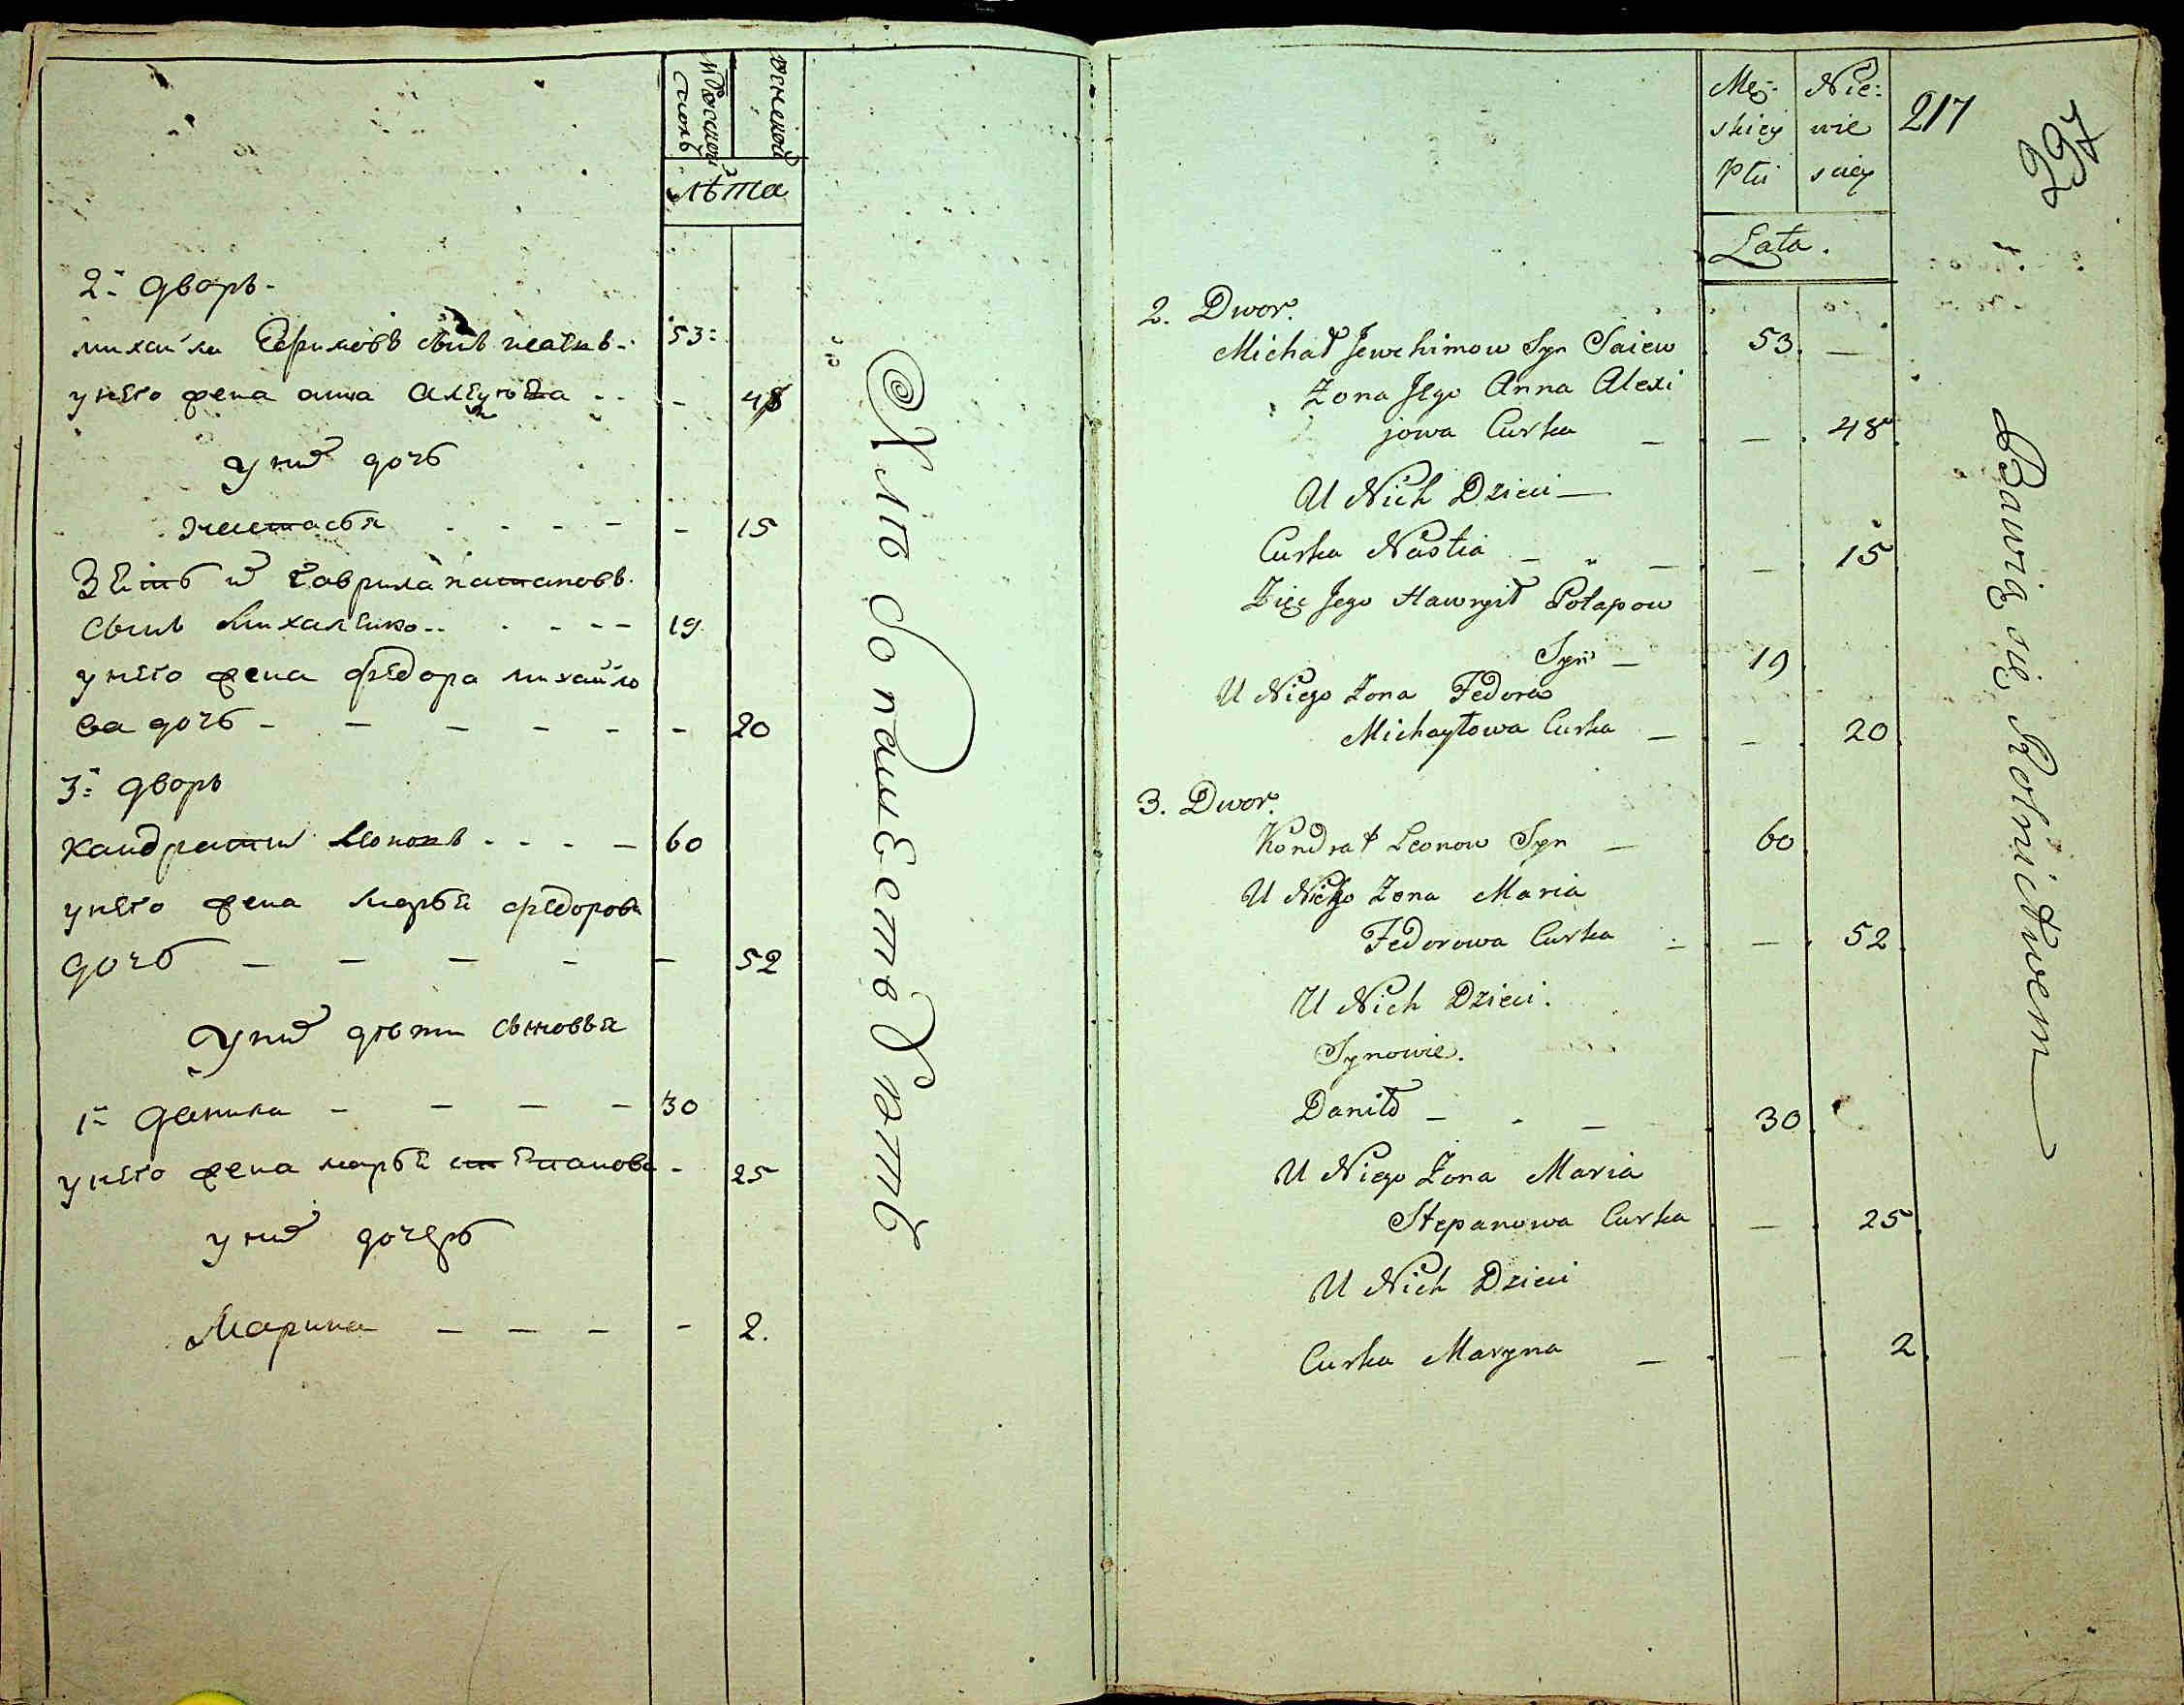 мужской
женской
лѣта
2й дворъ
михайла Ефимовъ сынъ исаевъ 53
у него жена анна Алеѯѣева 48
у них дочь
Настасья 15
Зеть их Гаврила патаповъ
сынъ Михаленко 19
у него жена федора михайло
ва дочь 20
3й дворъ
кандратий Леоновъ 60
у него жена Марья федорова
дочь 52
У них дѣти сыновья
1й данила 30
у него жена марья степанова 25
у них дочерь
Марина 2.
Хлѣбопашествуетъ
Męz-
skiey
Płci
Nie:
wie
sciey
217
297
Lata.
2. Dwor.
Michał Jewchimow Syn Saiew 53. —
Zona Jego Anna Alexi
jowa Curka — — 48
U Nich Dzieci —
Curka Nastia — — 15
Zięc Jego Hawrył Potapow
Syn — 19
U Niego Zona Fedora
Michayłowa Curka — — 20
3. Dwor.
Kondrat Leonow Syn — 60
U Niego Zona Maria
Fedorowa Curka — — 52
U Nich Dzieci.
Synowie.
Daniło — - — 30
U Niego Zona Maria
Stepanowa Curka — 25
U Nich Dzieci
Curka Maryna — — 2
Bawią się Rolnictwem